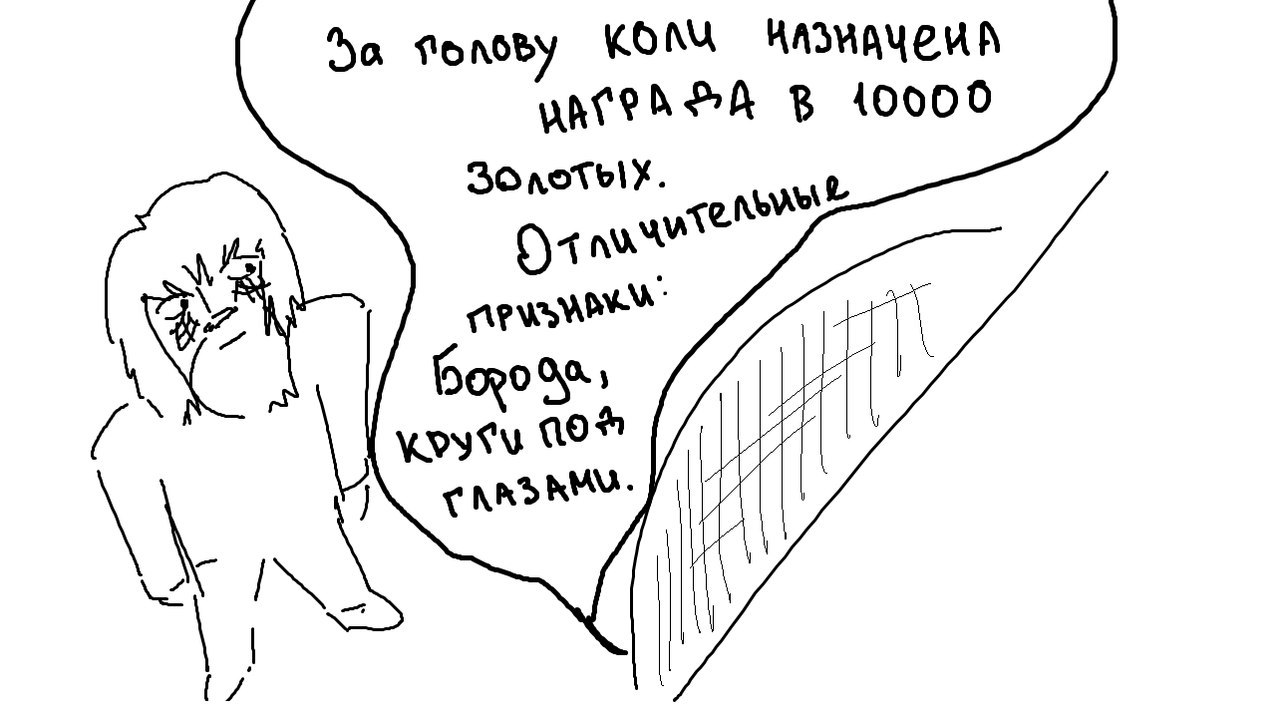 За голову коли назначена
награда в 10000
золотых.
Отличительные
признаки:
Борода,
круги под
глазами.